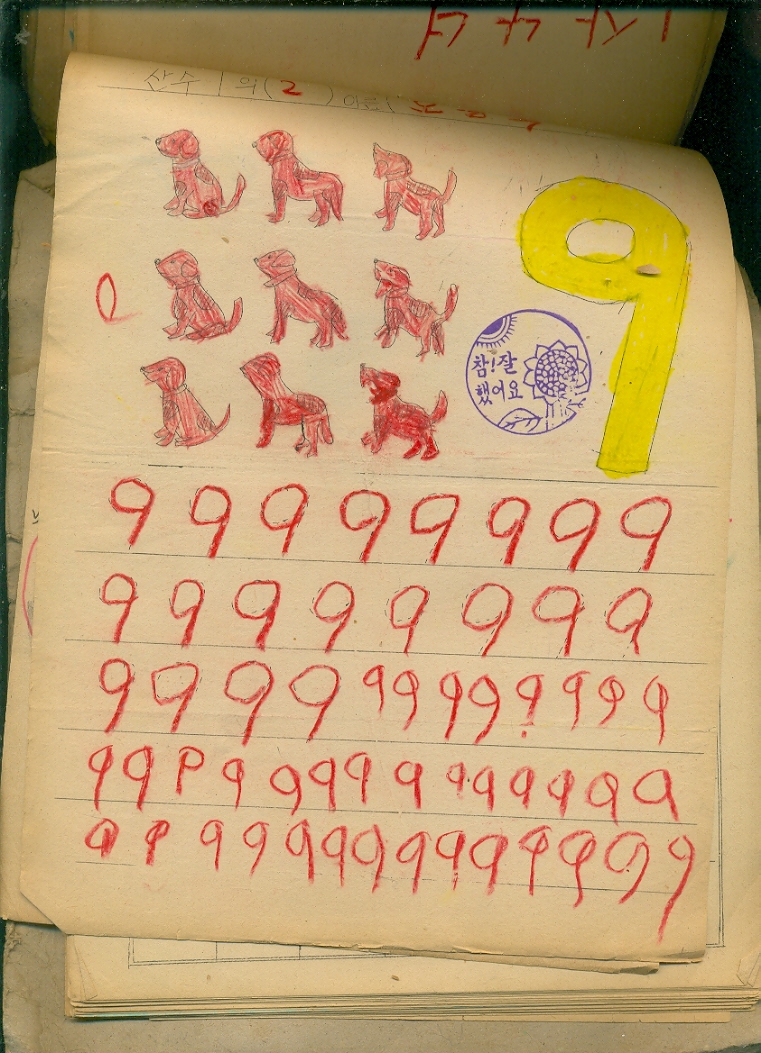 산수 1의(2) 이름(
9
참!잘
했어요
9 9 9 9 9 9 9 9
9 9 9 9 9 9 9 9
9 9 9 9 9 9 9 9 9 9 9 9
9 9 P 9 9 9 9 9 9 9 9 9 9 9
9 P 9 9 9 9 9 9 9 9 9 9 9 9